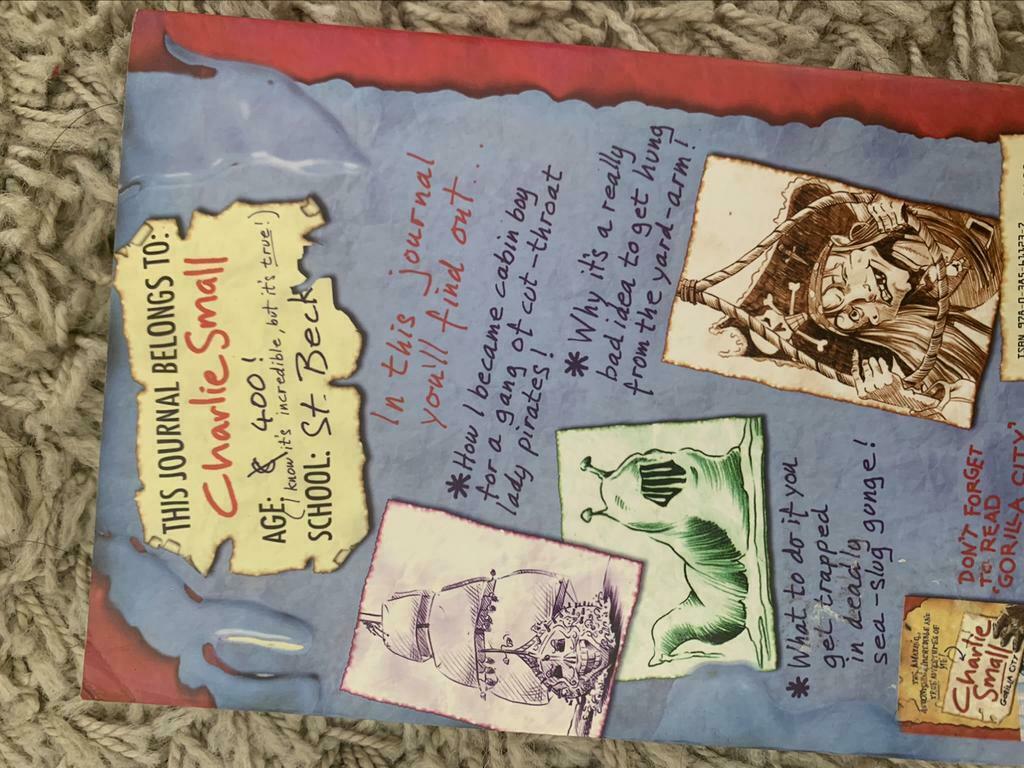 THIS JOURNAL BELONGS TO:
Charlie Small
AGE: 8 400!
(I know it's incredible, but it's true!)
SCHOOL: St. Beck
In this journal
you'll find out...
* How I became cabin boy
for a gang of cut-throat
lady pirates!
* Why it's a really
bad idea to get hung
from the yard-arm!
* What to do if you
get trapped
in deadly
sea-slug gunge!
DON'T FORGET
TO READ
'GORILLA CITY'
THE AMAZING,
TRUE ADVENTURES OF
ME!
Charlie
Small
GORILLA CITY